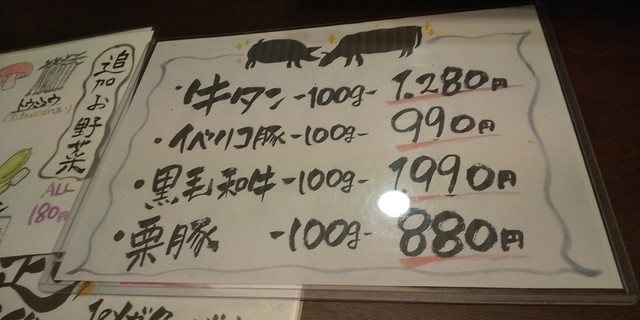 追加お野菜
ALL
180円
牛タン -100g- 1.280円
イベリコ豚 -100g- 990円
黒毛和牛 -100g- 1.990円
栗豚 -100g- 880円